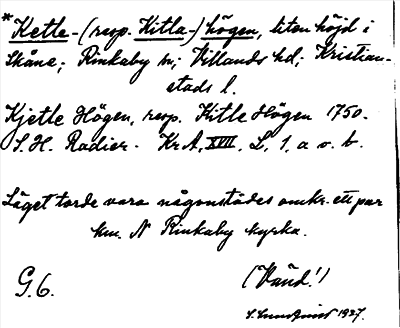 *Kette-(resp. Kitla-)högen, liten höjd i
Skåne; Rinkaby sn; Villands hd; Kristian-
stads l.
Kjetle Högen, resp. Kitle Högen 1750.
S. H. Radier. Kr. A. XVII. L, 1, a o. b.
Läget torde vara någonstädes omkr. ett par
km. N Rinkaby kyrka.
G. 6. (Vänd!)
S. Sundquist 1927.